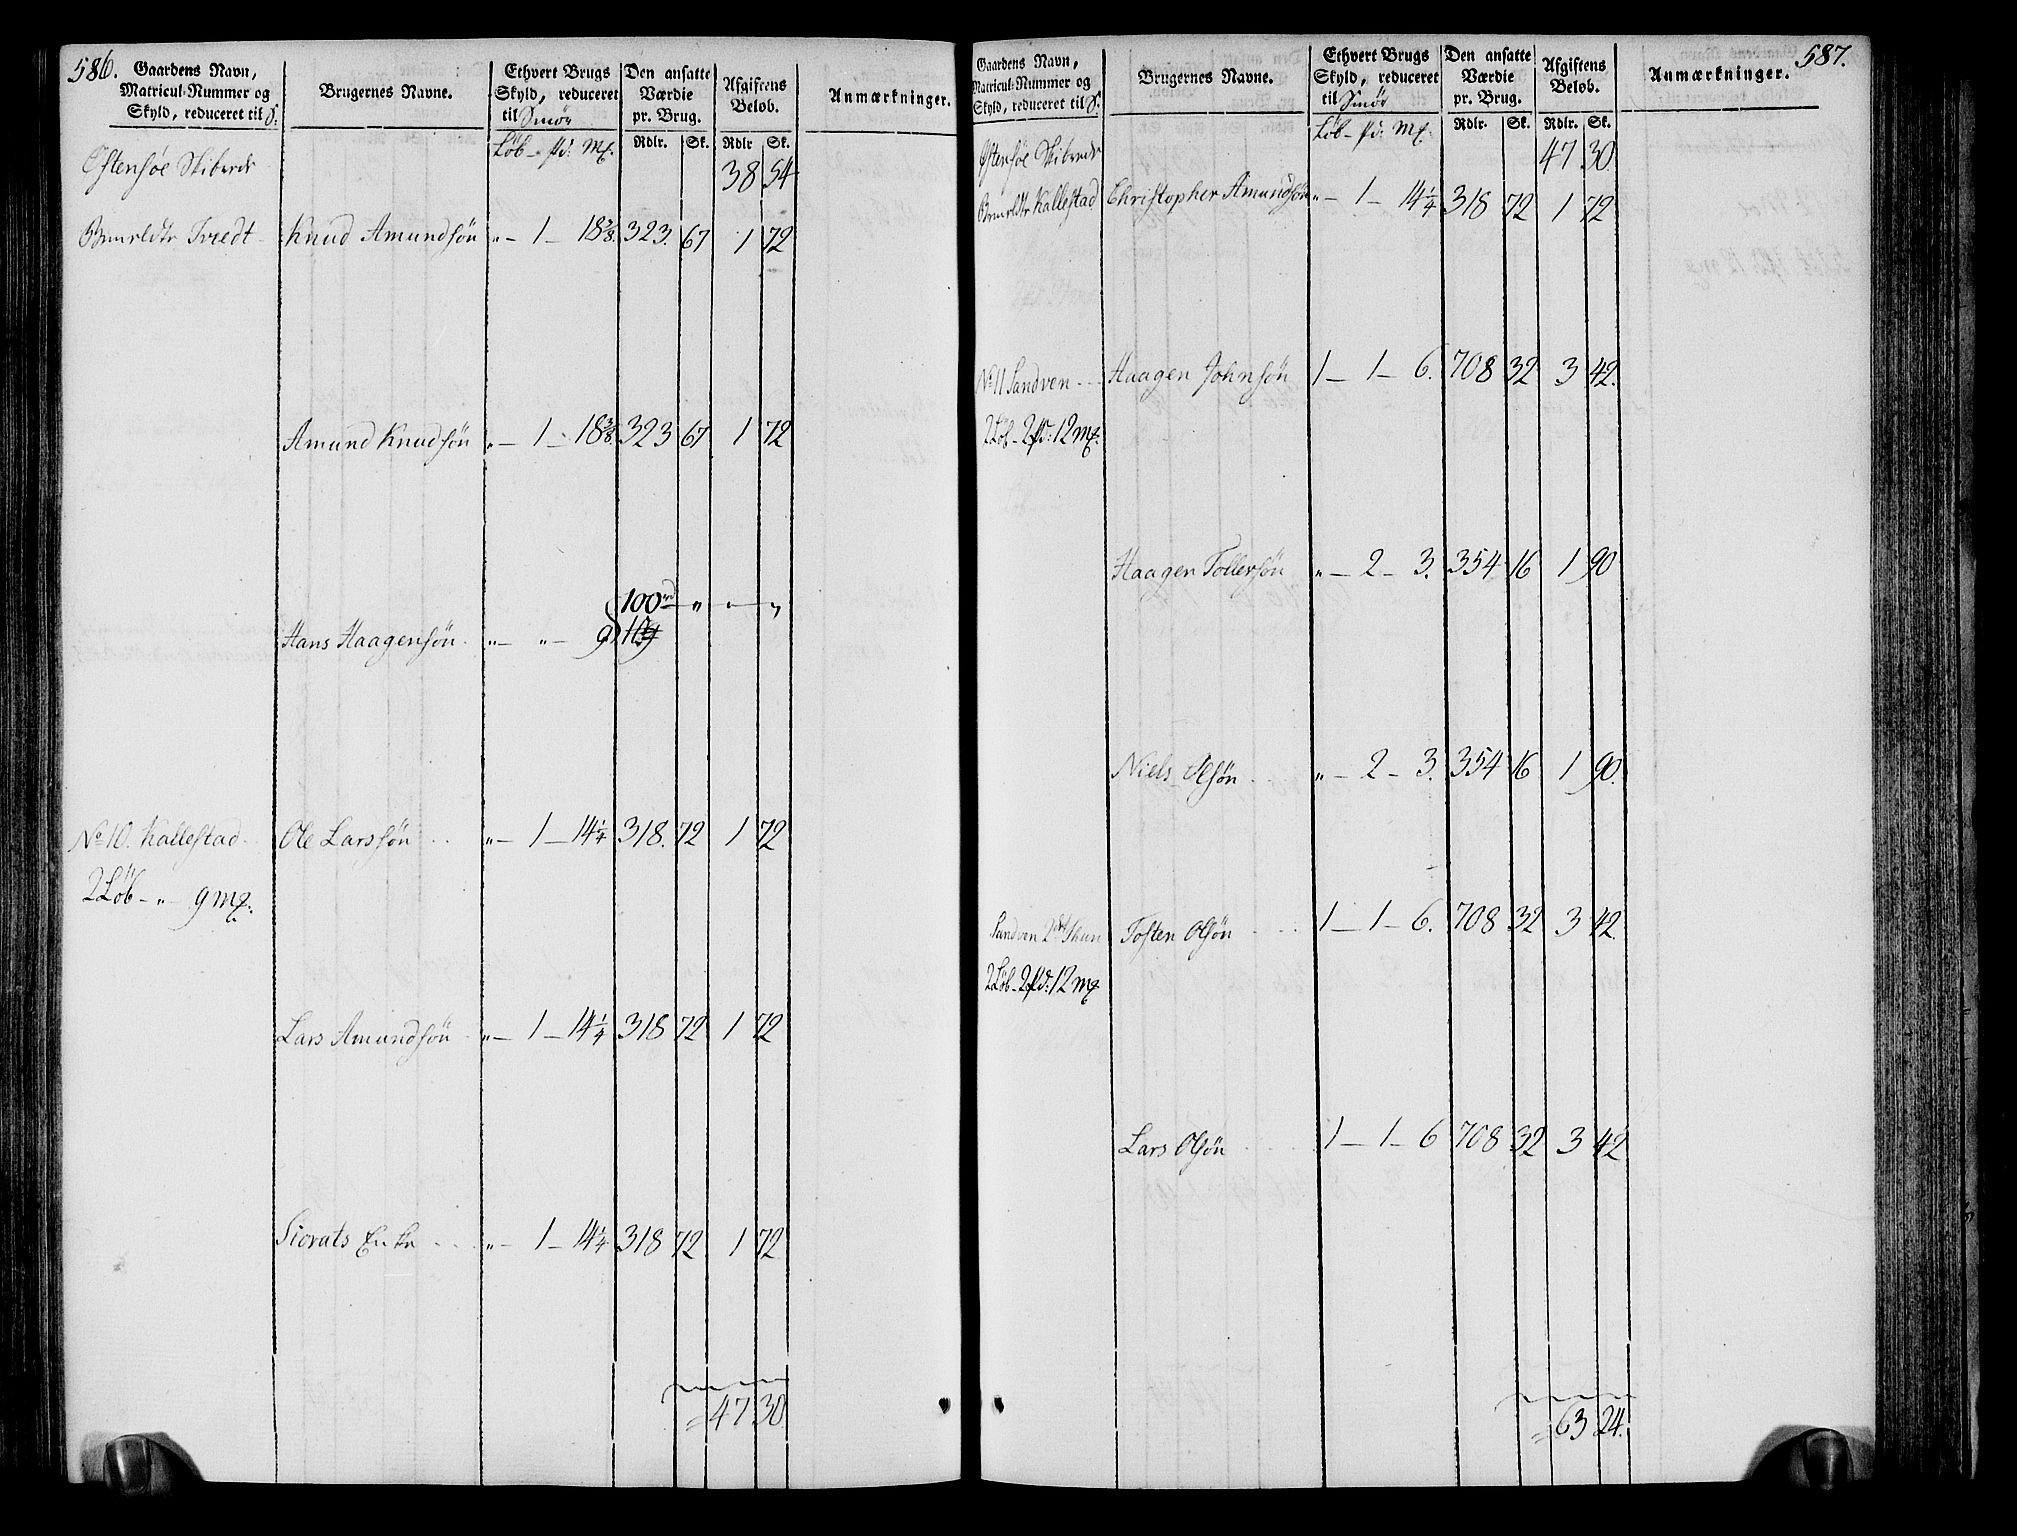 586.
Gaardens Navn, Matricul-Nummer og Skyld, reduceret til S:
Brugernes Navne.
Ethvert Brugs Skyld, reduceret til Smör
Den ansatte Værdie pr. Brug.
Afgiftens Beløb.
Anmærkninger.
Löb - Pd: Mk:
Rdlr. Sk. Rdlr Sk.
Østensøe Skibrede 38 54
Tvedt Knud Amundsøn „ – 1 – 18 3/8. 323. 67 1 72
Amund Knudsøn „ – 1 – 18 3/8. 323 67 1 72
100 rd „ „ „
Hans Haagensøn „ – „ – 9
No 10. Kallestad Ole Larssøn „ – 1 – 14 1/4 318. 72 1 72
2 Löb - „ - 9 Mk:
Lars Amundsøn „ – 1 – 14 1/4 318 72 1 72
Siovats Enke „ – 1 – 14 1/4 318 72 1 72
= 47 30
587.
Gaardens Navn, Matricul-Nummer og Skyld, reduceret til S:
Brugernes Navne.
Ethvert Brugs Skyld, reduceret til Smör
Den ansatte Værdie pr. Brug.
Afgiftens Beløb.
Anmærkninger.
Löb - Pd: Mk:
Rdlr. Sk. Rdlr. Sk.
Østensøe Skibrede 47 30
Kallestad Christopher Amundsøn „ – 1 – 14 1/4 318 72 1 72
No 11 Sandven Haagen Johnsøn 1 – 1 – 6. 708 32 3 42.
2 Löb - 2 Pd: 12 Mk:
Haagen Tollersøn „ – 2 – 3. 354 16 1 90
Niels Olsøn „ – 2 – 3. 354 16 1 90.
Sandven 2det Tuun Tosten Olsøn 1 – 1 – 6. 708 32 3 42
2 Löb - 2 Pd: 12 Mk
Lars Olsøn 1 – 1 – 6 708 32 3 42
= 63 24.